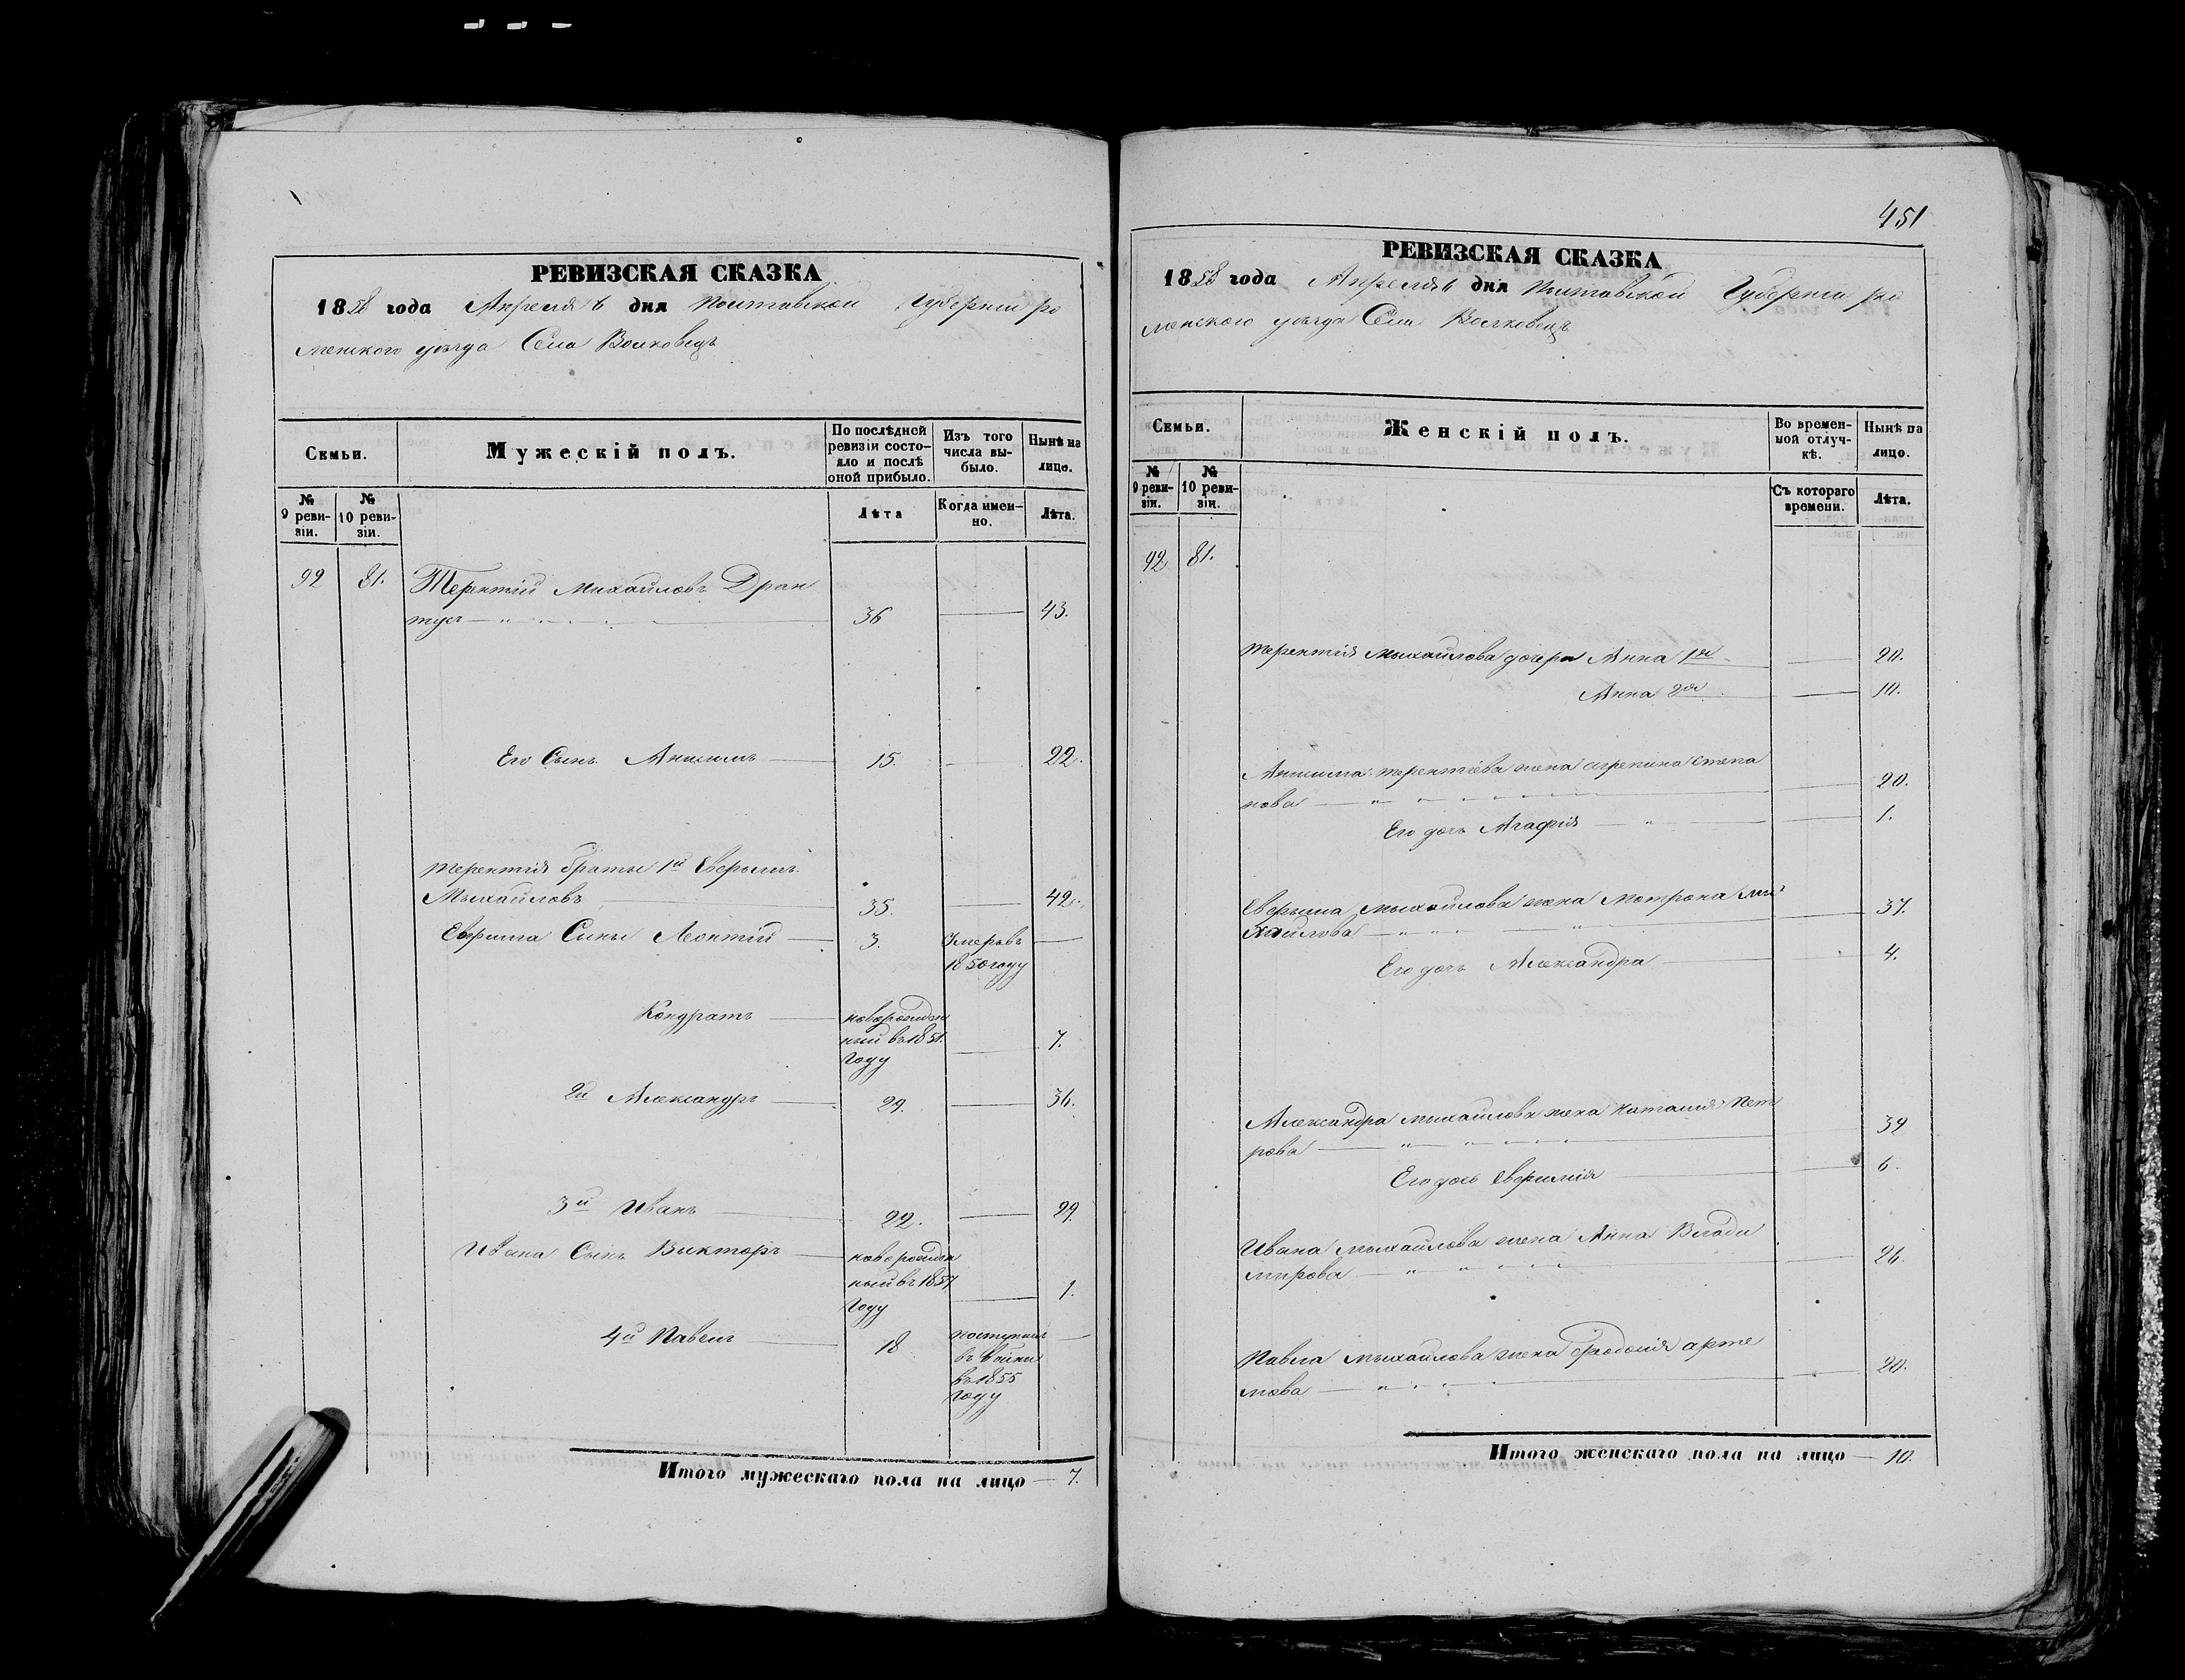 РЕВИЗСКАЯ СКАЗКА
1858 года Апреля 6 дня Полтавской Губернии ро
менского уезда Села Волковецъ
Семьи.
Мужескій полъ.
По послѣдней ревизіи состо-
яло и послѣ
оной прибыло.
Изъ того
числа вы-
было.
Нынѣ на
лицо.
№
9 реви-
зіи.
№
10 реви-
зіи.
Лѣта
Когда имен-
но.
Лѣта.
92 81. Терентій Михайловъ Дран
36 43.
Его Сынъ Анисимъ 15. 22.
терентія братья 1й Еверимъ
Мыхайловъ 35. 42.
Сыны Леонтій 3. Умеръ въ
1850 году
Кондратъ новорожден
ный въ 1851.
году 7.
2й Александръ 29. 36.
3й Иванъ 22. 29.
Ивана Сынъ Викторъ новорожден
ный въ 1857
году 1.
4й Павелъ 18 поступилъ
въ
въ 1855
году
Итого мужескаго пола на лицо — 7.
451
РЕВИЗСКАЯ СКАЗКА
1858 года Апреля 6 дня Полтавской Губернии ро
менского уезда Села Волковецъ
Семьи.
Женскій полъ.
Во времен-
ной отлуч-
кѣ.
Нынѣ на
лицо.
№
9 реви-
зіи.
№
10 реви-
зіи.
Съ котораго
времени.
Лѣта.
92 81.
терентія мыхайлова дочери Анна 1я 20.
Анна 2я 10.
Анисима терентіева жена агрепина степа
нова 20.
Его дочь Агафія 1.
Еверима мыхайлова жена Мотрона Ми
хайлова 37.
Его дочь Александра 4.
Александра мыхайлова жена Наталия Пет
рова 32
Его дочь 6.
Ивана мыхайлова жена Анна Влади
мирова 26.
Павла мыхайлова жена Феодосія арте
мова 20.
Итого женскаго пола на лицо — 10.